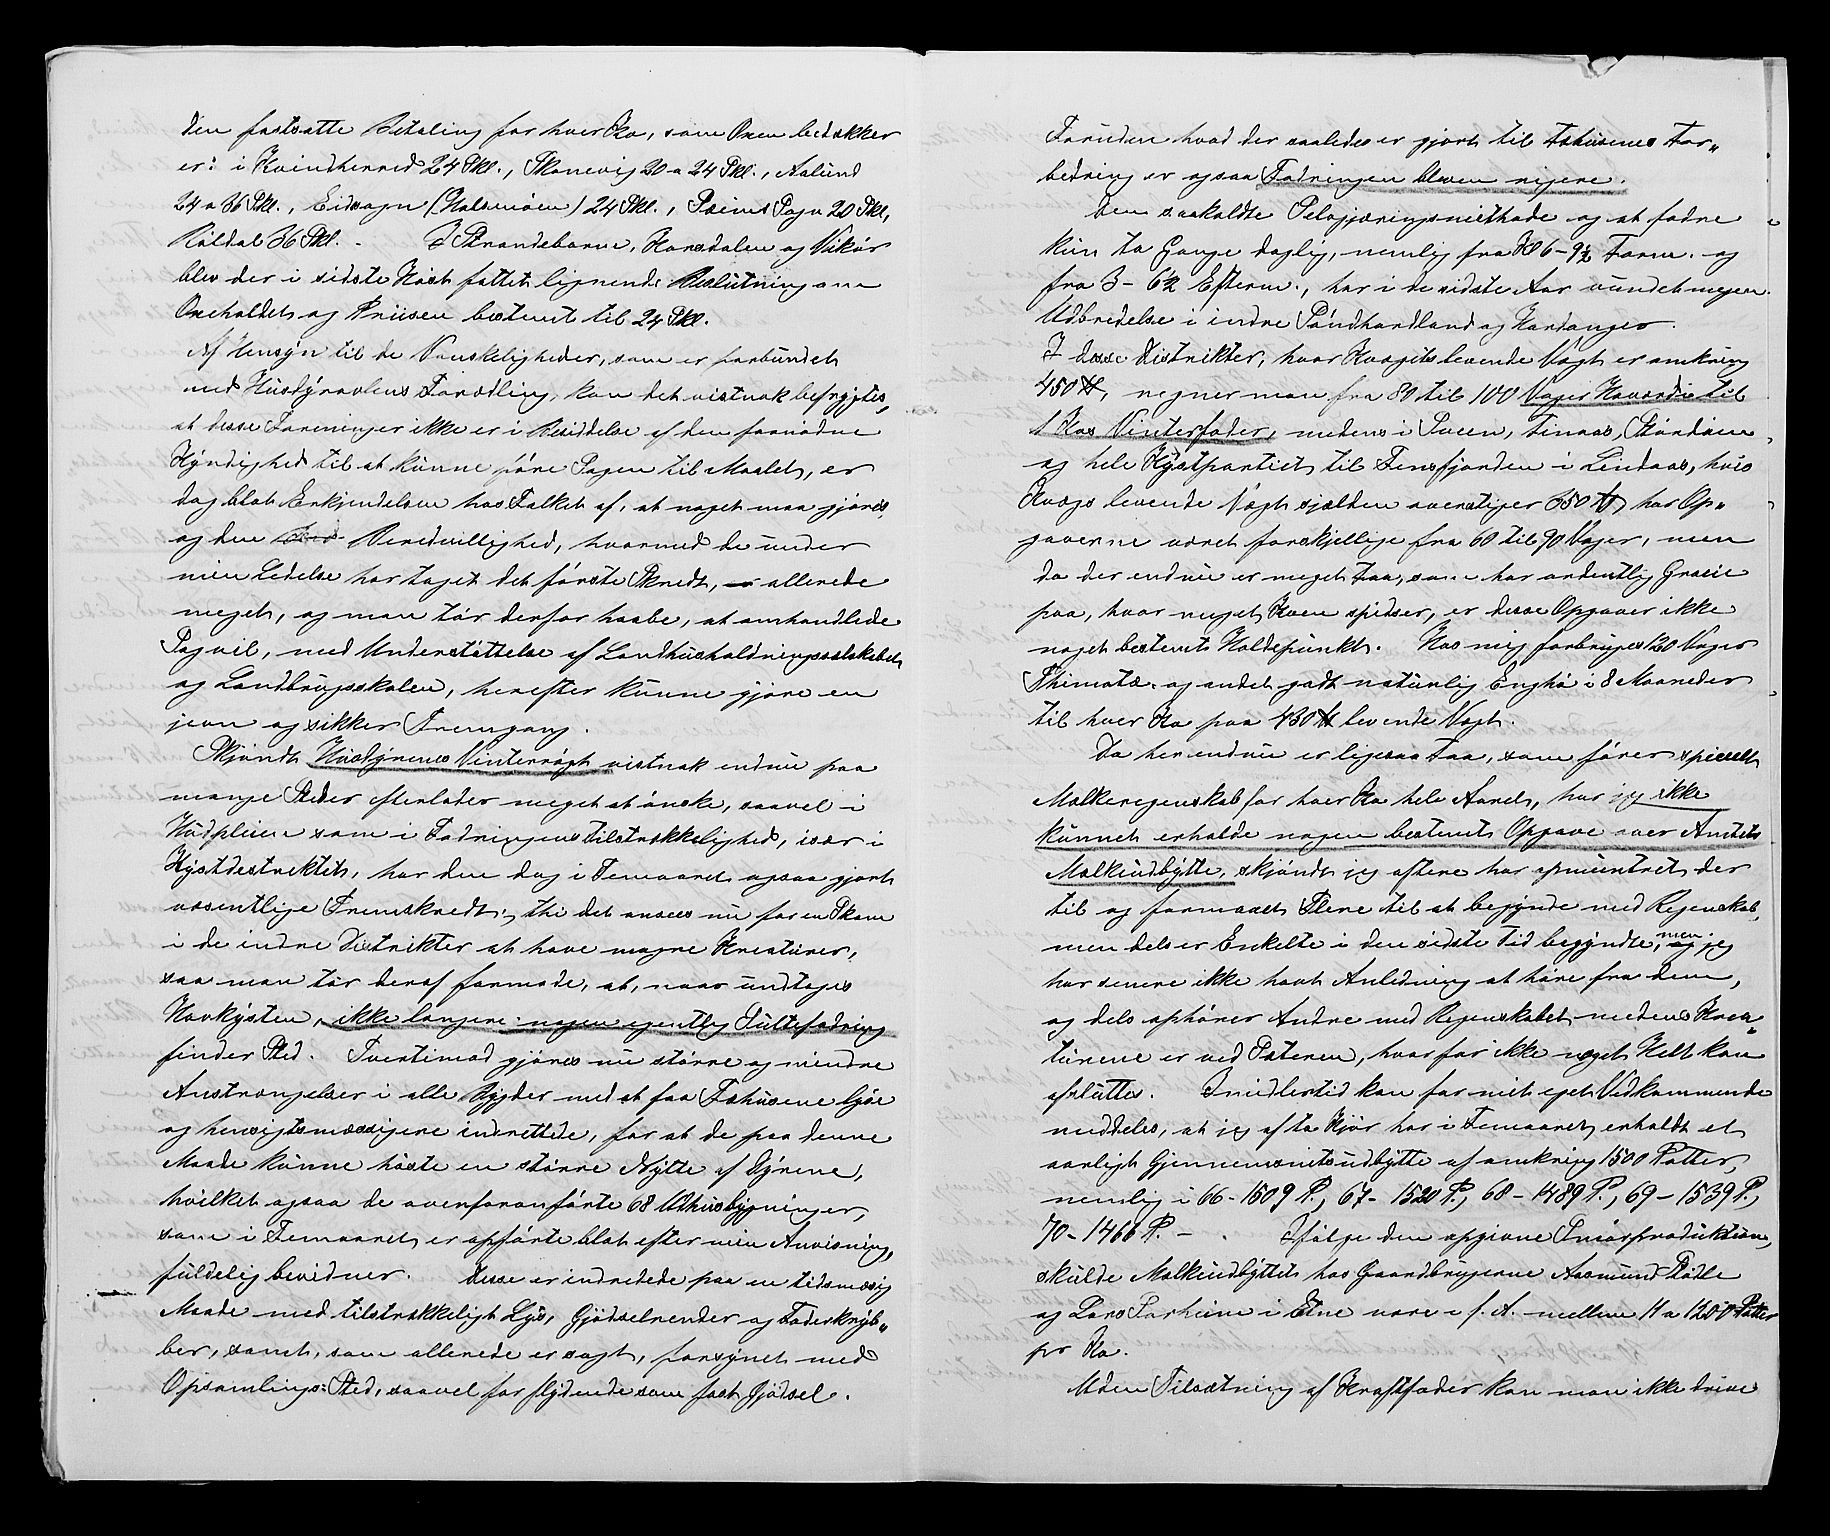 den fastsatte Betaling for hver Ko, som Oxen bedækker
er: i Kvindherred 24 Skl., Skonevig 20 a 24 Skl., Aalund
24 a 36 Skl., Eidsogn (Holsenøen) 24 Skl., Seims Sogn 20 Skl,
Røldal 36 Skl. – I Strandebarm, Korsdalen og Vikør
blev der i sidste Høst fattet lignende Beslutning om
Oxeholdet og Prisen bestemt til 24 Skl.
Af Hensyn til de Vanskeligheder, som er forbundet
med Husdyravlens Forædling, kan det vistnok befrygtes,
at disse Foreninger ikke er i Besiddelse af den fornødne
Kyndighed til at kunne føre Sagen til Maalet, er
dog blot Erkjendelsen hos Folket af, at noget maa gjøres
og den Beredvillighed, hvormed de under
min Ledelse har taget det første Skridt, allerede
meget, og man tør derfor haabe, at omhandlede
Sag vil, med Understøttelse af Landhusholdningsselskabet
og Landbrugsskolen, herefter kunne gjøre en
jevn og sikker Fremgang.
Skjøndt Husdyrenes Vinterrøgt vistnok endnu paa
mange Steder efterlader meget at ønske, saavel i
Hudpleie som i Fodringens Tilstrækkelighed, især i
Kystdistriktet, har den dog i Femaaret ogsaa gjort
væsentlige Fremskridt; thi det ansees nu for en Skam
i de indre Distrikter at have magre Kreaturer,
saa man tør deraf formode, at, naar undtages
Havkysten, ikke længere nogen egentlig Sultefodring
finder Sted. Tvertimod gjøres nu større og mindre
Anstrængelser i alle Bygder med at faa Fæhusene lyse
og hensigtsmæssigere indrettede, for at de paa denne
Maade kunne høste en større Nytte af Dyrene,
hvilket ogsaa de ovenforanførte 68 Udhusbygninger,
som i Femaaret er opførte blot efter min Anvisning,
fuldelig bevidner. Disse er indredede paa en tidsmæssig
Maade med tilstrækkeligt Lys, Gjødselrender og Foderkryb„
ber, samt, som allerede er sagt, forsynet med
Opsamlings-Sted, saavel for flydende som fast Gjødsel.
Foruden hvad der saaledes er gjort til Fæhusenes For„
bedring er ogsaa Fodringen bleven rigere.
Den saakaldte Selvgjæringsmethode og at fodre
kun to Gange daglig, nemlig fra Kl 6 – 9½ Form. og
fra 3 – 6½ Efterm., har i de sidste Aar vundet megen
Udbredelse i indre Søndhordland og Hardanger.
I disse Distrikter, hvor Kvægets levende Vægt er omkring
450 ℔, regner man fra 80 til 100 Voger Høværdie til
1 Kos Vinterfoder, medens i Sveen, Finaas, Stordøen
og hele Kystpartiet til Fensfjorden i Lindaas, hvis
Kvægs levende Vægt sjelden overstiger 350 ℔, har Op„
gaverne været forskjellige fra 60 til 90 Voger, men
da der endnu er meget faa, som har ordentlig Greie
paa, hvor meget Koen spidser, er disse Opgaver ikke
noget bestemt Holdepunkt. Hos mig forbruges 120 Voger
Thimote og andet godt naturlig Enghø i 8 Maaneder
til hver Ko paa 430 ℔ levende Vægt.
Da her endnu er ligesaa faa, som fører specielt
Melkeregenskab for hver Ko hele Aaret, har jeg ikke
kunnet erholde nogen bestemt Opgave over Amtets
Melkeudbytte, skjøndt jeg oftere har opmuntret der
til og formaaet Flere til at begynde med Regenskab,
men dels er Enkelte i den sidste Tid begyndte, men jeg
har senere ikke havt Anledning at høre fra dem,
og dels ophører Andre med Regenskabet medens Krea„
turene er ved Sæteren, hvorfor ikke noget Helt kan
afsluttes. Imidlertid kan for mit eget Vedkommende
meddeles, at jeg af to Kjør har i Femaaret erholdt et
aarligt Gjennemsnitsudbytte af omkring 1500 Potter,
nemlig i 66 – 1509 P., 67 – 1520 P., 68 – 1489 P., 69 – 1539 P.,
70 – 1466 P. – . Ifølge den opgivne Smørproduktion,
skulde Melkeudbyttet hos Gaardbrugerne Aasmund Stødle
og Lars Sørheim i Etne være i f. A. mellem 11 a 1200 Potter
pr Ko.
Uden Tilsætning af Kraftfoder kan man ikke drive